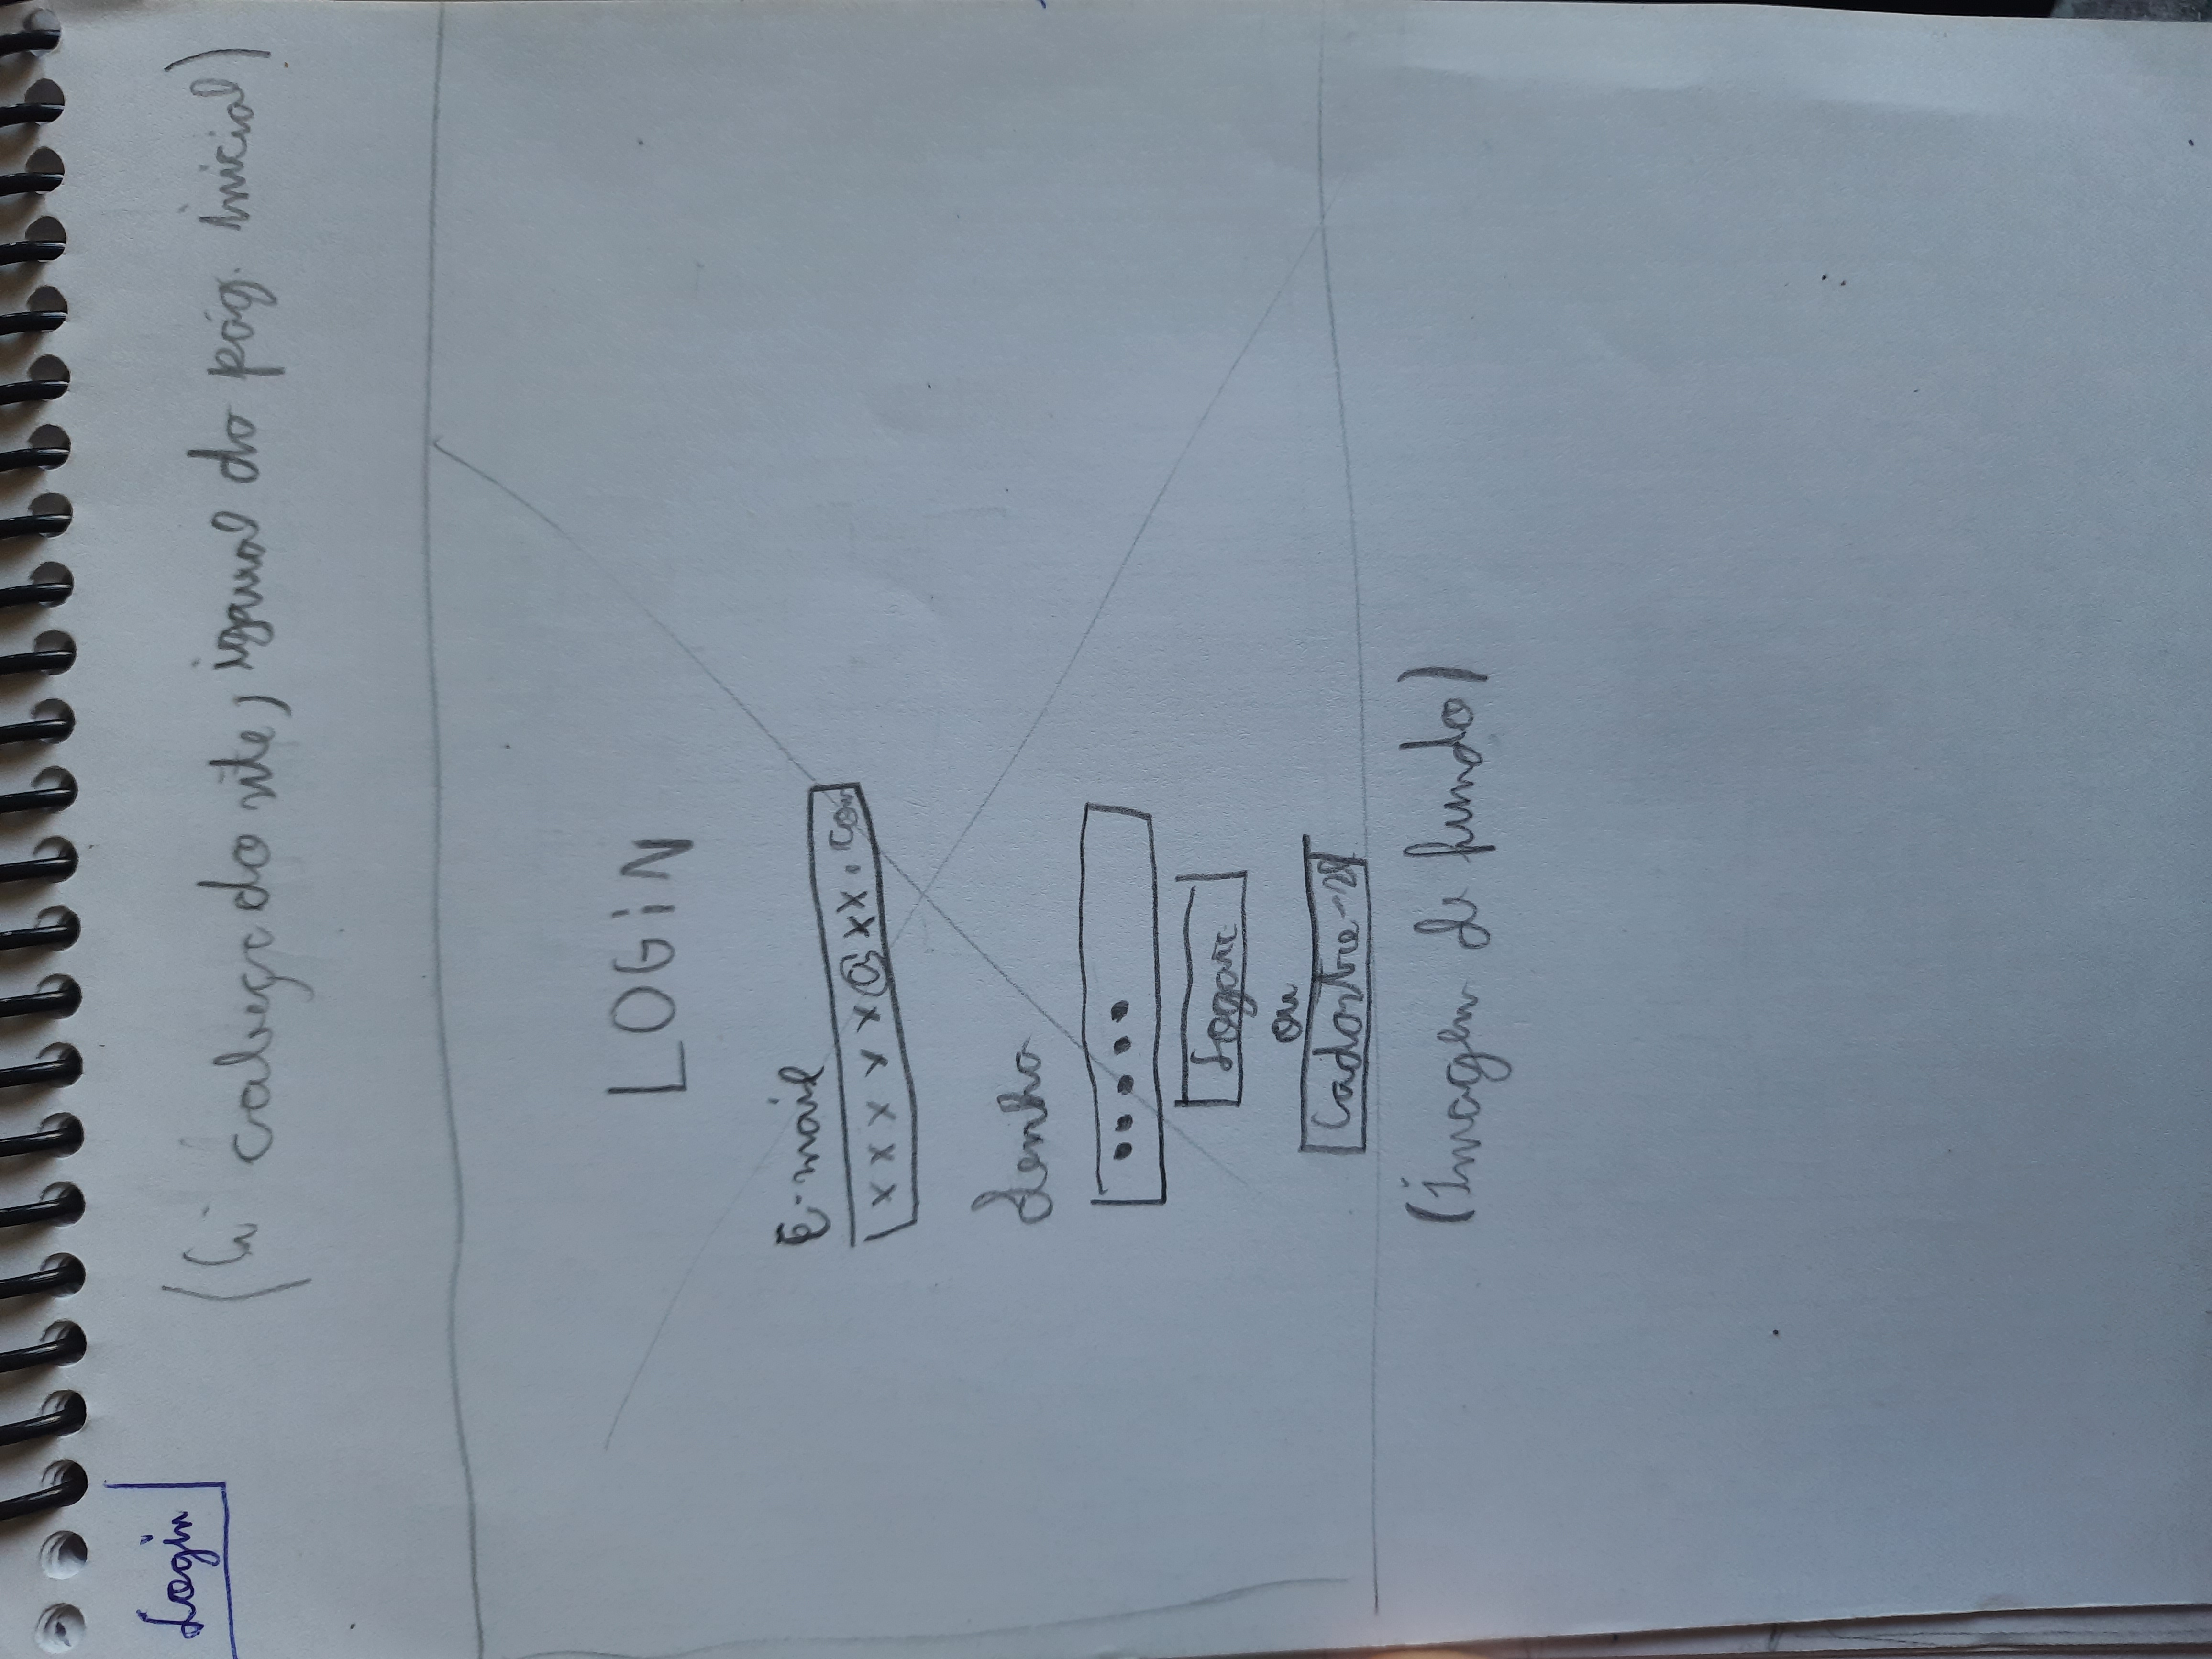 Login
cabeça do site, igaual do pág. inicial)
LOGiN
E-mail
xxxxx@xx.com
Senha
•••••
Logar
ou
Cadastre-se
(imagem de fundo)